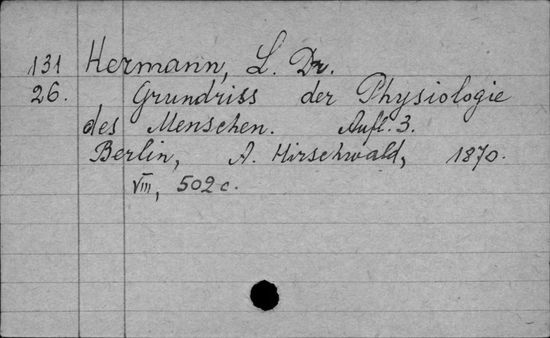 131 Hermann, L. Dr.
26. Grundriss der Physiologie
des Menschen. Aufl. 3.
Berlin, A. Hirschwald, 1870.
VIII, 502 c.